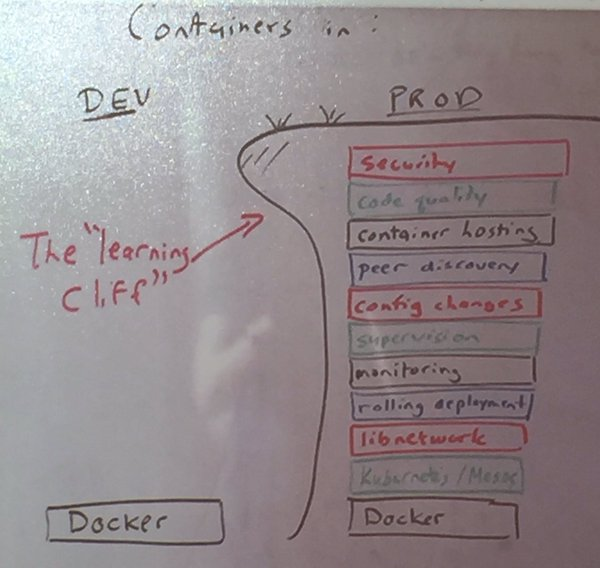 Containers in:
DEV
PROD
The "learning
Cliff"
security
code quality
container hosting
peer discovery
config changes
supervision
monitoring
rolling deployment
libnetwork
Kubernetes / Mesos
Docker
Docker